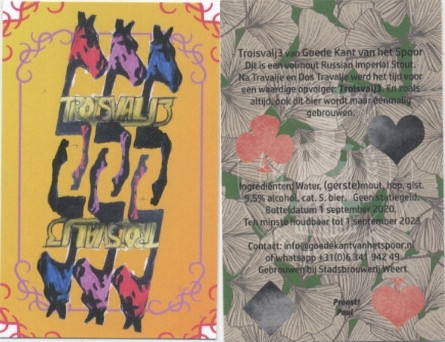 TROISVALJ3
TROISVALJ3
Troisvalj3 van Goede Kant van het Spoor
Dit is een volmout Russian Imperial Stout.
Na Travalje en Dos Travalje werd het tijd voor
een waardige opvolger: Troisvalj3. En zoals
altijd, ook dit bier wordt maar eenmalig
gebrouwen.
Ingrediënten: Water, (gerste)mout, hop, gist.
9,5% alcohol, cat. S. bier. Geen statiegeld.
Botteldatum 1 september 2020,
Ten minste houdbaar tot 1 september 2023
Contact: info@goedekantvanhetspoor.nl
of whatsapp +31(0)6 341 942 49
Gebrouwen bij Stadsbrouwerij Weert
Proost!
Paul